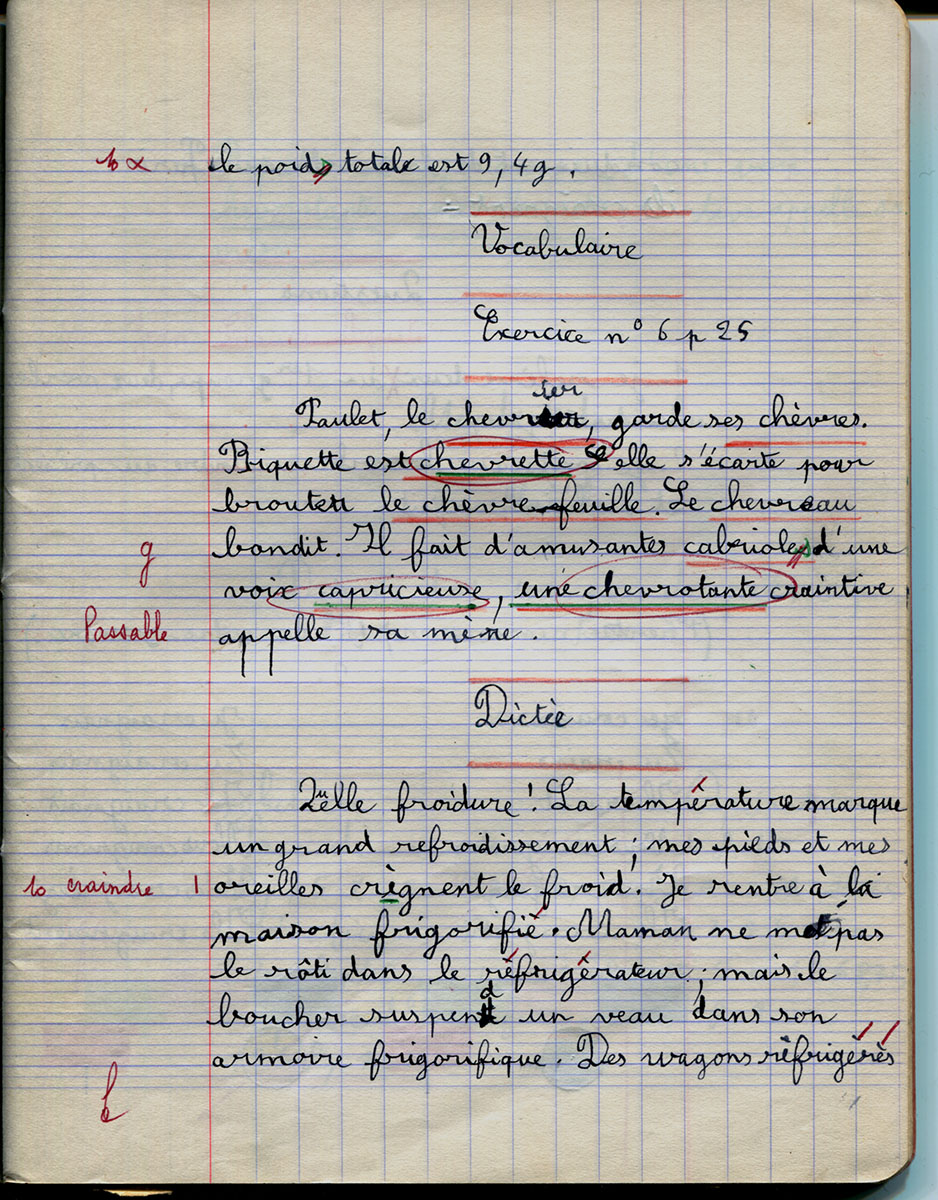 le poids totale est 9,4g.
Vocabulaire
Exercice n° 6 p 25
ier
Paulet, le chevrier, garde ses chèvres.
Biquette est chevrette elle s'écarte pour
brouter le chèvre-feuille. Le chevreau
bondit. Il fait d'amusantes cabrioles d'une
g
voix capricieuse, une chevrotante craintive
Passable
appelle sa mère.
Dictée
Quelle froidure ! La température marque
un grand refroidissement ; mes pieds et mes
10 craindre 1 oreilles crègnent le froid. Je rentre à la
maison frigorifié. Maman ne met pas
le rôti dans le réfrigérateur ; mais le
boucher suspend un veau dans son
armoire frigorifique. Des wagons réfrigérés